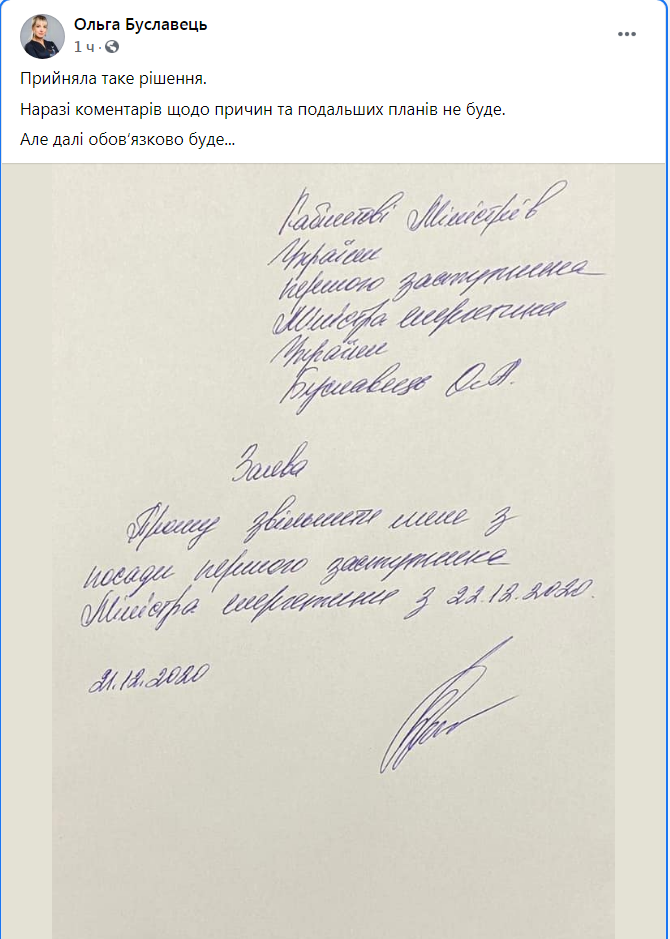 Ольга Буславець
1 ч ·
Прийняла таке рішення.
Наразі коментарів щодо причин та подальших планів не буде.
Але далі обов’язково буде...
Кабінетові Міністрів
України
першого заступника
Міністра енергетики
України
Буславець О.А.
Заява
Прошу звільнити мене з
посади першого заступника
Міністра енергетики з 22.12.2020.
21.12.2020